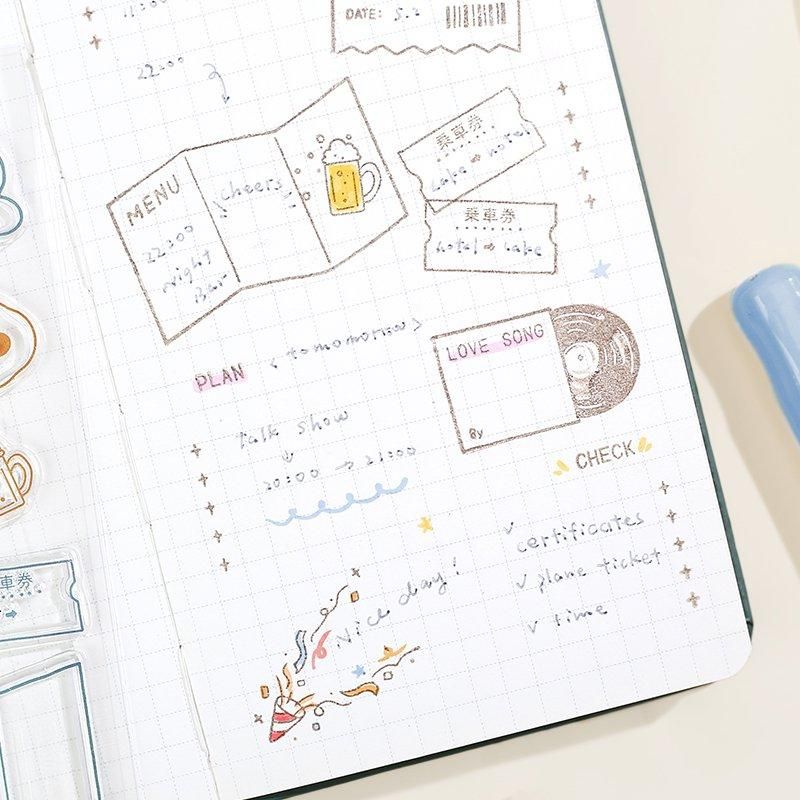 11:00
DATE: 5.2
22:00
MENU
22:00
Night
Bar
cheers
乗車券
Lake → hotel
乗車券
hotel → Lake
PLAN < tomorrow >
LOVE SONG
By
talk show
20:00 → 21:00
CHECK
✓ certificates
✓ plane ticket
✓ time
Nice day!
車券